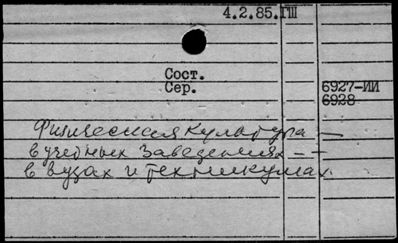 4.2.85.ГШ
Сост.
Сер.
6927-ИИ
6928
Физическая культура —
в учебных заведениях — —
в вузах и техникумах.